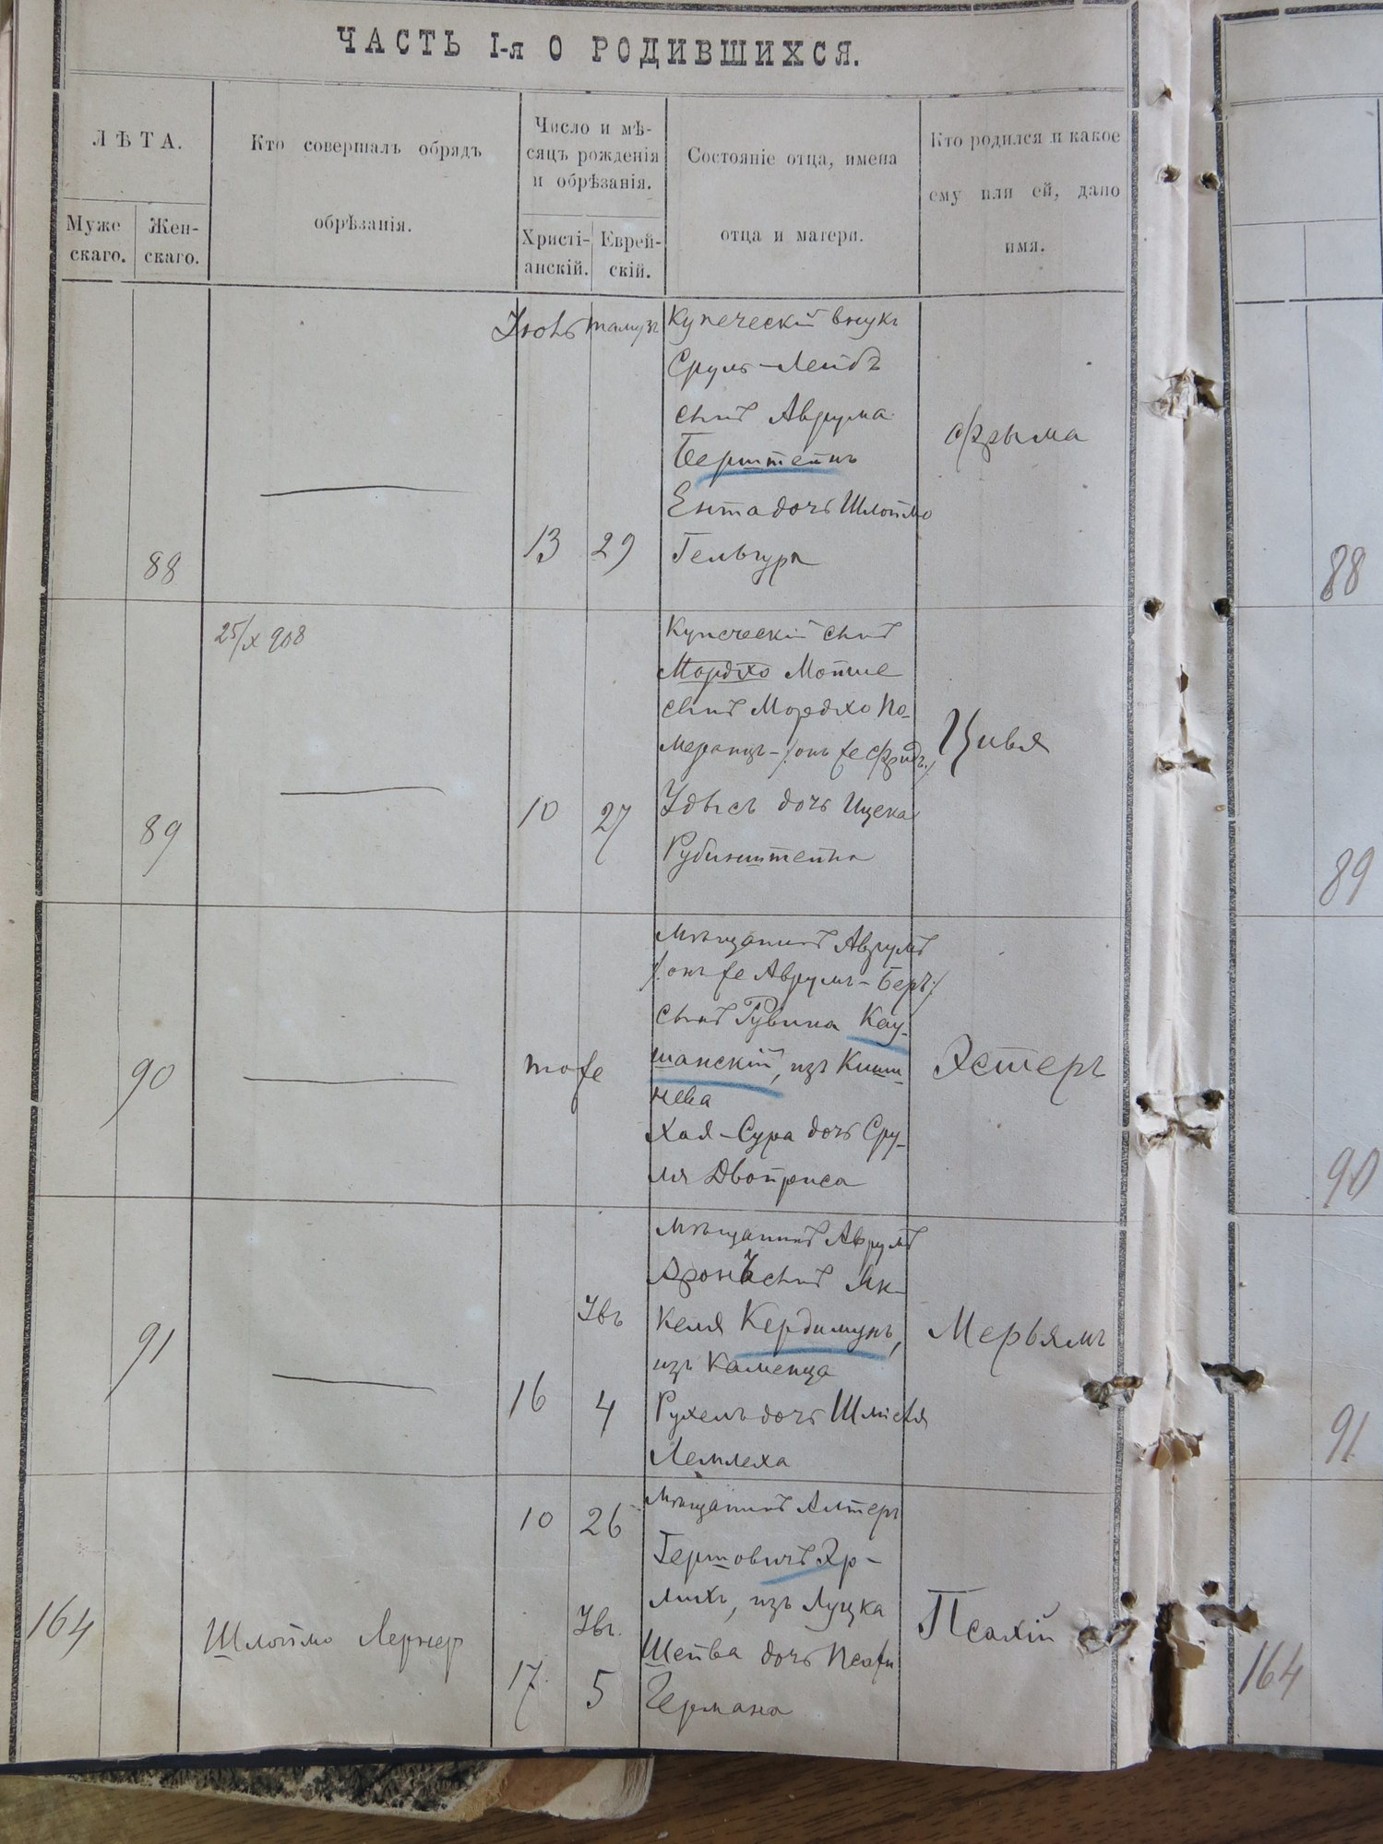 ЧАСТЬ I-я О РОДИВШИХСЯ.
ЛѢТА.
Муже
скаго.
Жен-
скаго.
Кто совершалъ обрядъ
обрѣзанія.
Число и мѣ-
сяцъ рожденія
и обрѣзанія.
Христі-
анскій.
Еврей-
скій.
Состояніе отца, имена
отца и матери.
Кто родился и какое
ему или ей, дано
имя.
88
Іюль
13
тамузъ
29
Купеческій внукъ
Сруль-Лейбъ
сынъ Аврума
Берштейнъ
Ента дочь Шлоймо
Фрыма
88
89
25/X 908
10
27
Купеческій сынъ
Мордхо Мойше
сынъ Мордхо По-
меранцъ - /:онъ же Фридъ:/
Удысъ дочь Ицека
Рубинштейна
Цивья
89
90
тоже
Мѣщанинъ Аврумъ
/:онъ же Аврумъ-Беръ:/
сынъ Рувина Кау-
шанскій, изъ Киши-
нева
Хая-Сура дочь Сру-
ля Двойриса
Эстеръ
90
91
16
Увъ
4
Мѣщанинъ Аврумъ
Аронъ сынъ Ян-
келя Кердимунъ,
изъ Каменца
Рухель дочь Шмiеля
Лемлеха
Мерьямъ
91
164
Шлоймо Лернер
10
17
26
Увъ.
5
Мѣщанинъ Алтеръ
Гершовичъ Эр-
лихъ, изъ Луцка
Шейва дочь
Германа
Псахій
164